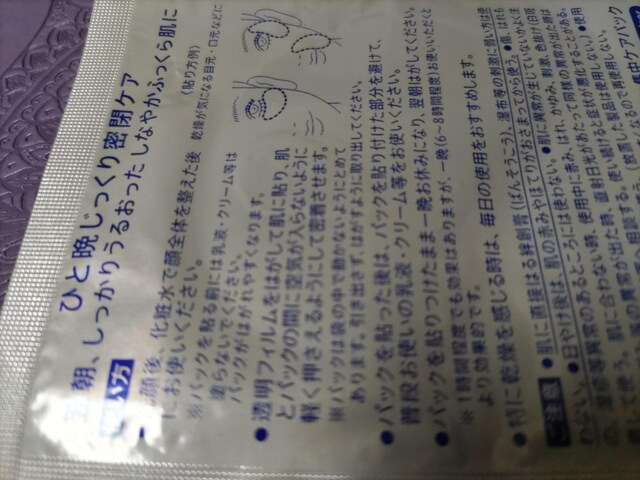 ひと晩じっくり密閉ケア
朝、しっかりうるおったしなやかふっくら肌に
〈貼り方例〉
乾燥が気になる目元・口元などに
顔後、化粧水で顔全体を整えた後
にお使いください。
※パックを貼る前には乳液・クリーム等は
塗らないでください。
パックがはがれやすくなります。
●透明フィルムをはがして肌に貼り、肌
とパックの間に空気が入らないように
軽く押さえるようにして密着させます。
※パックは袋の中で動かないようにとめて
あります。引き出さず、はがすように取り出してください。
●パックを貼った後は、パックを貼り付けた部分を避けて、
普段お使いの乳液・クリーム等をお使いください。
●パックを貼りつけたまま一晩お休みになり、翌朝はがしてください。
※1時間程度でも効果はありますが、一晩(6~8時間程度)お使いいただくと
より効果的です。
●特に乾燥を感じる時は、毎日の使用をおすすめします。
ご注意
●肌に直接はる絆創膏(ばんそうこう)、湿布等の刺激に弱い方は使
わない。●日やけ後は、肌の赤みやほてりがおさまってから使う。●傷、はれも
の、湿疹等異常のあるところには使わない。●肌に異常が生じていないかよく注
意して使う。